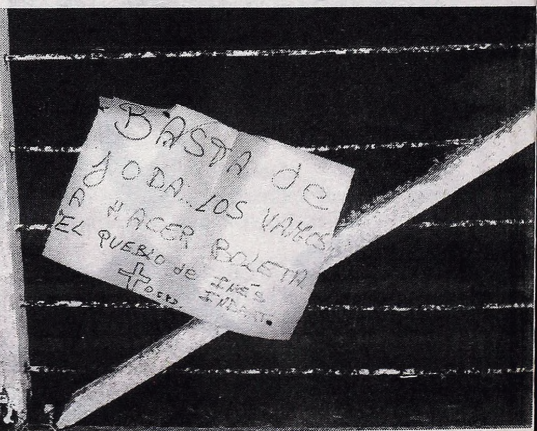 BASTA de
JODA..LOS VAMOS
A HACER BOLETA.
EL PUEBLO de INÉS
INDART.